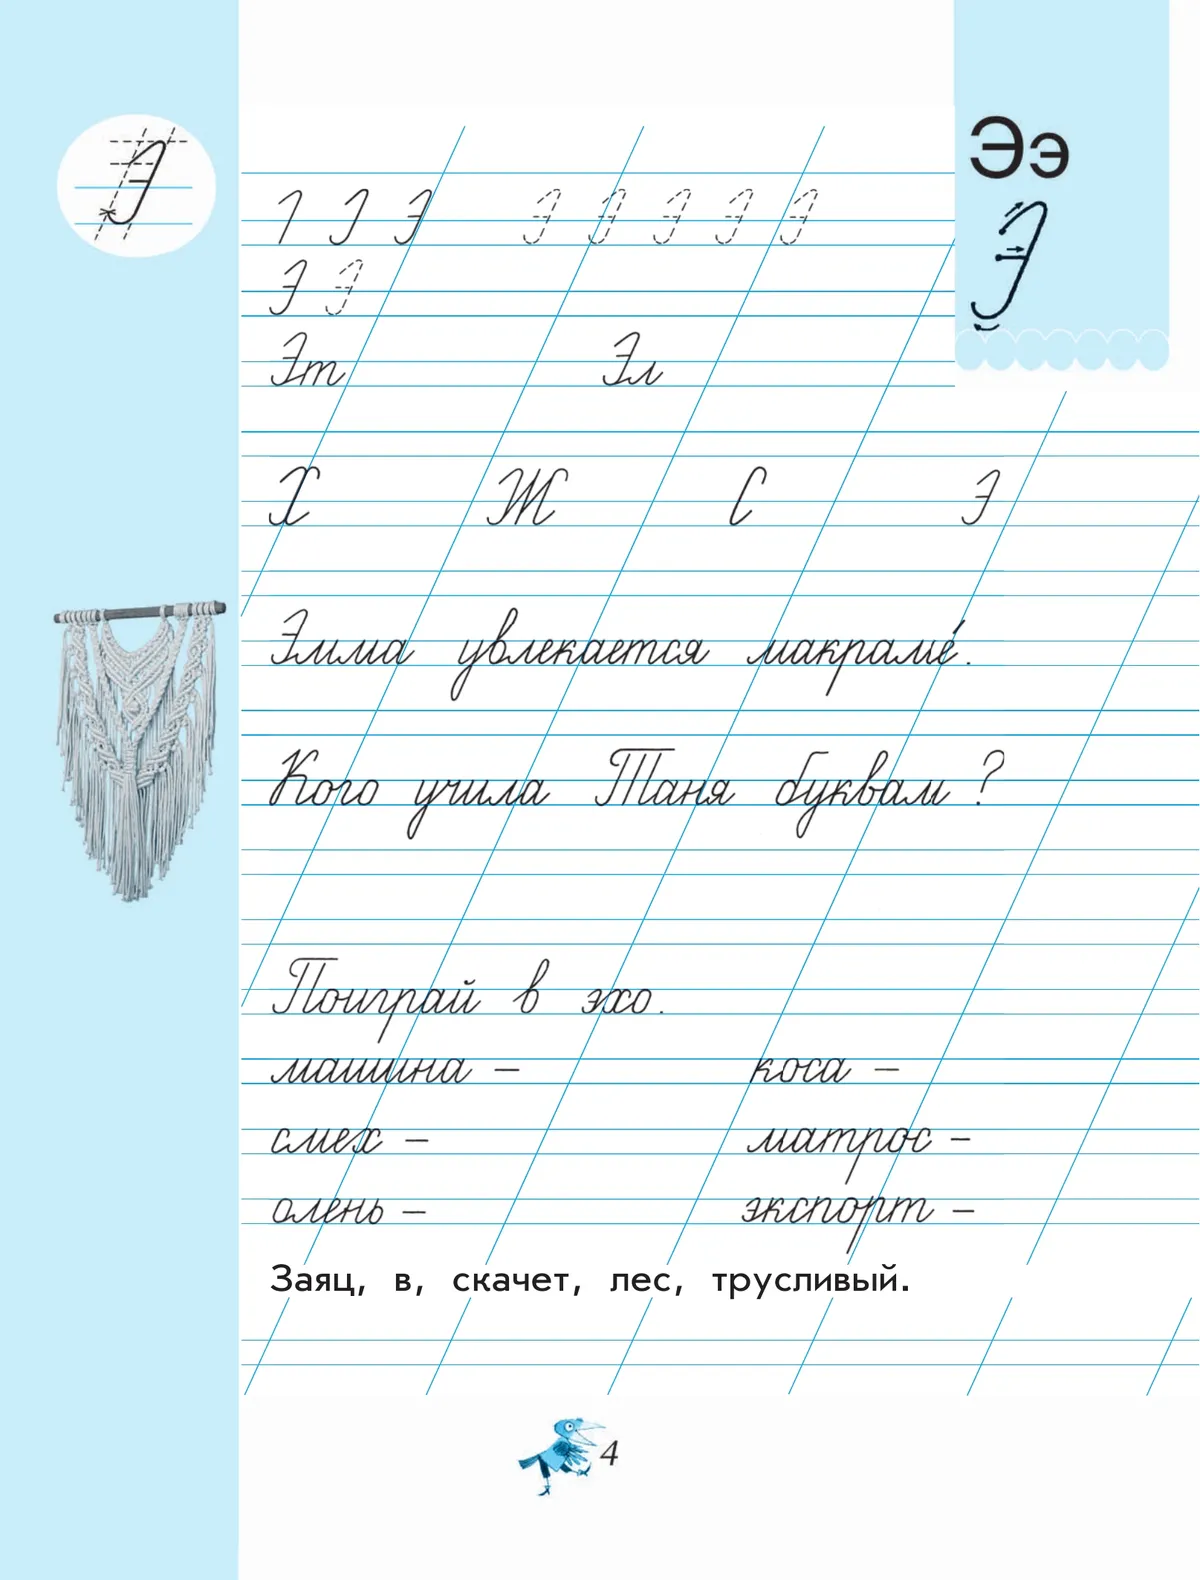 Э
Ээ
Э
Э Э Э Э Э Э
Э Э
Эт Эл
Х Ж С Э
Эмма увлекается макраме́.
Кого учила Таня буквам?
Поиграй в эхо.
машина – коса –
смех – матрос –
олень – экспорт –
Заяц, в, скачет, лес, трусливый.
4